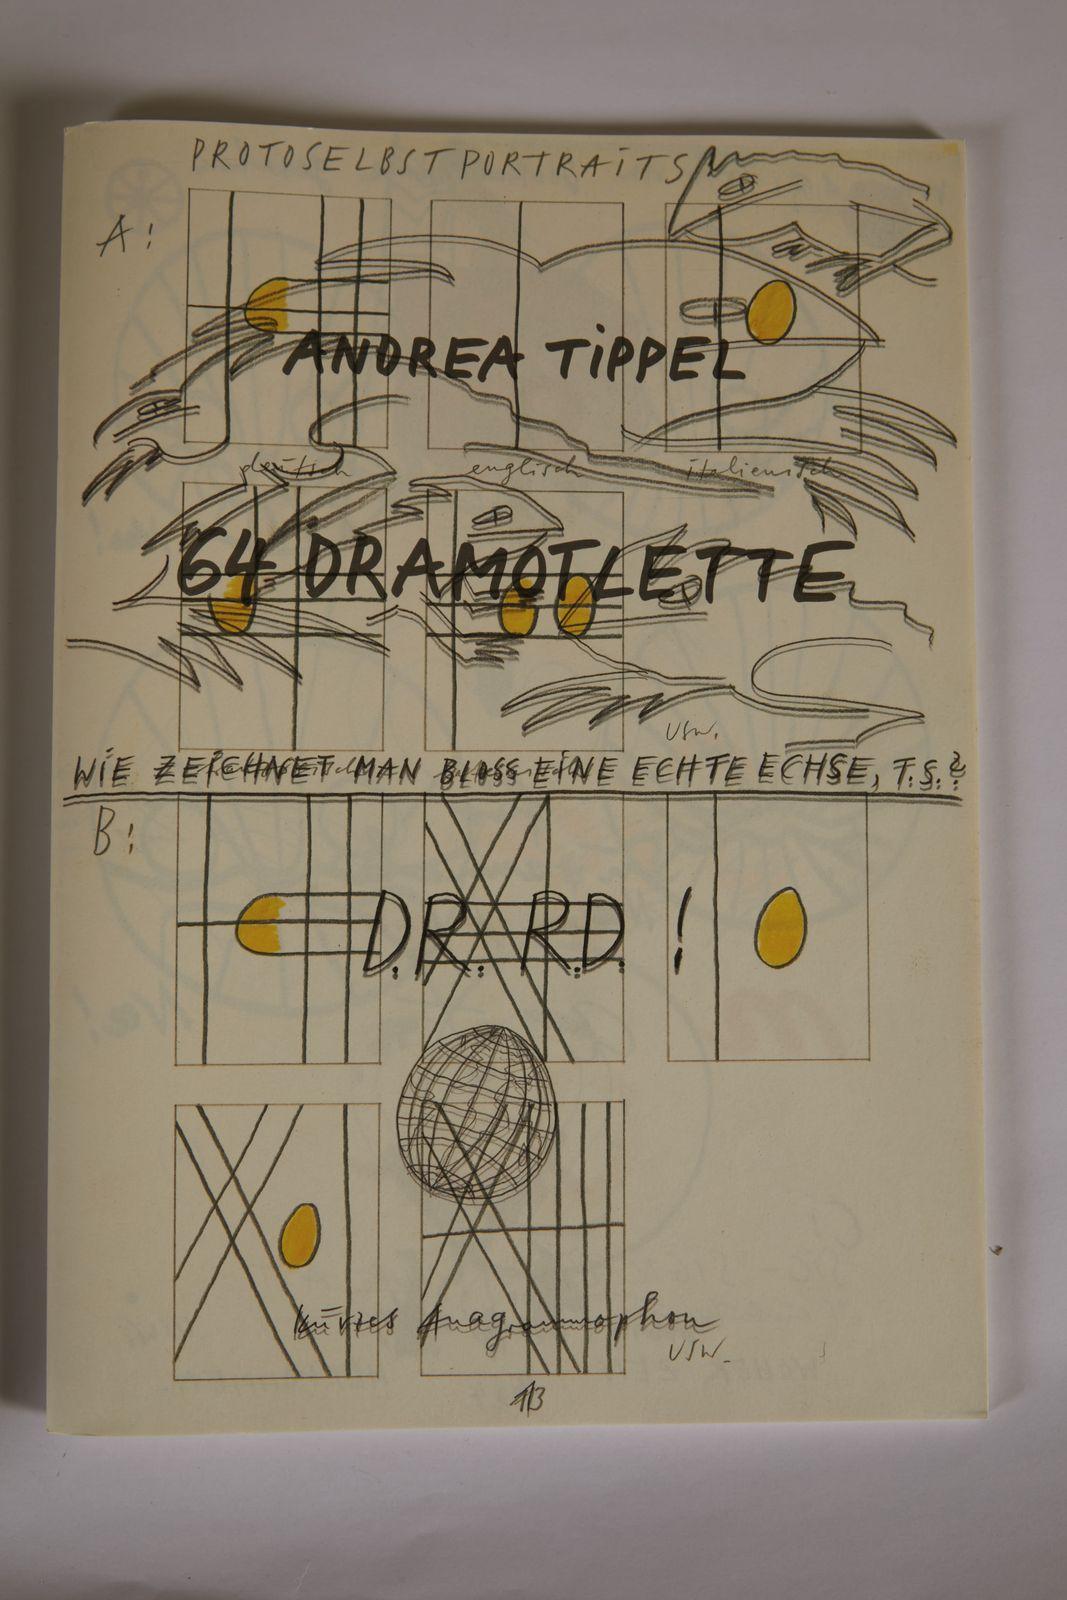 PROTOSELBSTPORTRAiTS
A:
ANDREA TiPPEL
deutsch englisch italienisch
64 DRAMOTLETTE
usw.
WiE ZEiCHNET MAN BLOSS EiNE ECHTE ECHSE, T.S.?
B:
D.R. R.D. !
kurzes Anagrammophon
usw.
13